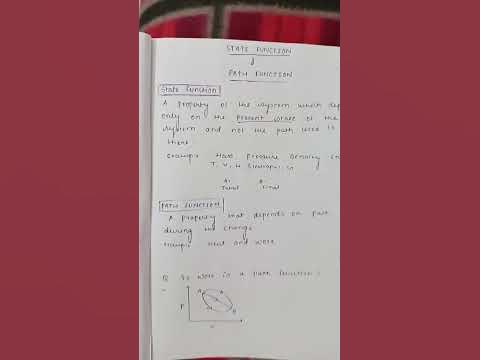 STATE FUNCTION
&
PATH FUNCTION
State Function
A property of the system which dep
only on the present state of the
system and not the path used to
there
example Mass pressure Density
T, V, H
A→ B→
Final
PATH FUNCTION
A property that depends on path
during the change
example heat and work
Q So work is a path function
A
B
P